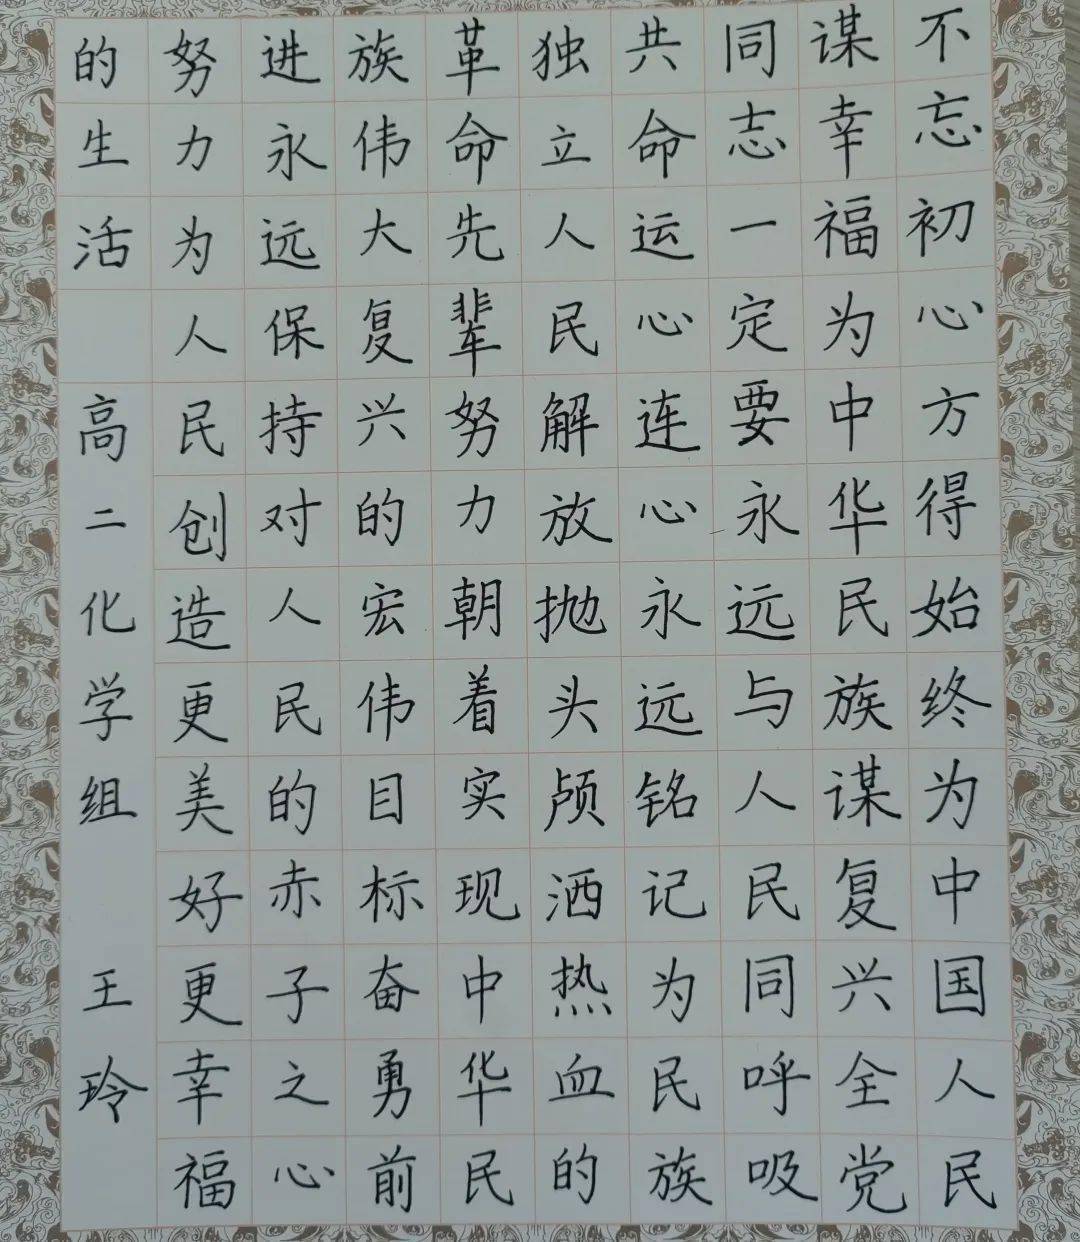 不忘初心方得始终为中国人民
谋幸福为中华民族谋复兴全党
同志一定要永远与人民同呼吸
共命运心连心永远铭记为民族
独立人民解放抛头颅洒热血的
革命先辈努力朝着实现中华民
族伟大复兴的宏伟目标奋勇前
进永远保持对人民的赤子之心
努力为人民创造更美好更幸福
的生活
高二化学组 王玲